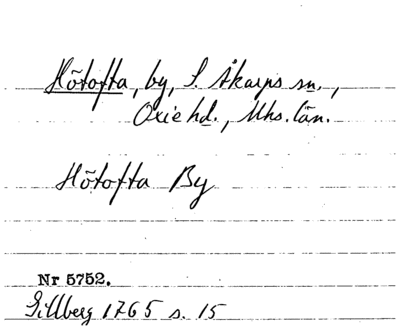 Hötofta, by, S. Åkarps sn.,
Oxie hd., Mhs. län.
Hötofta By
Nr 5752.
Gillberg 1765 s. 15